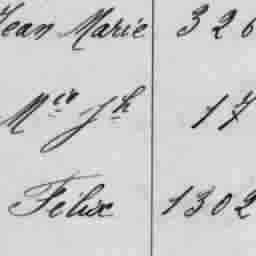 Jean Marie 326
Mce Jh 17
Félix 1302